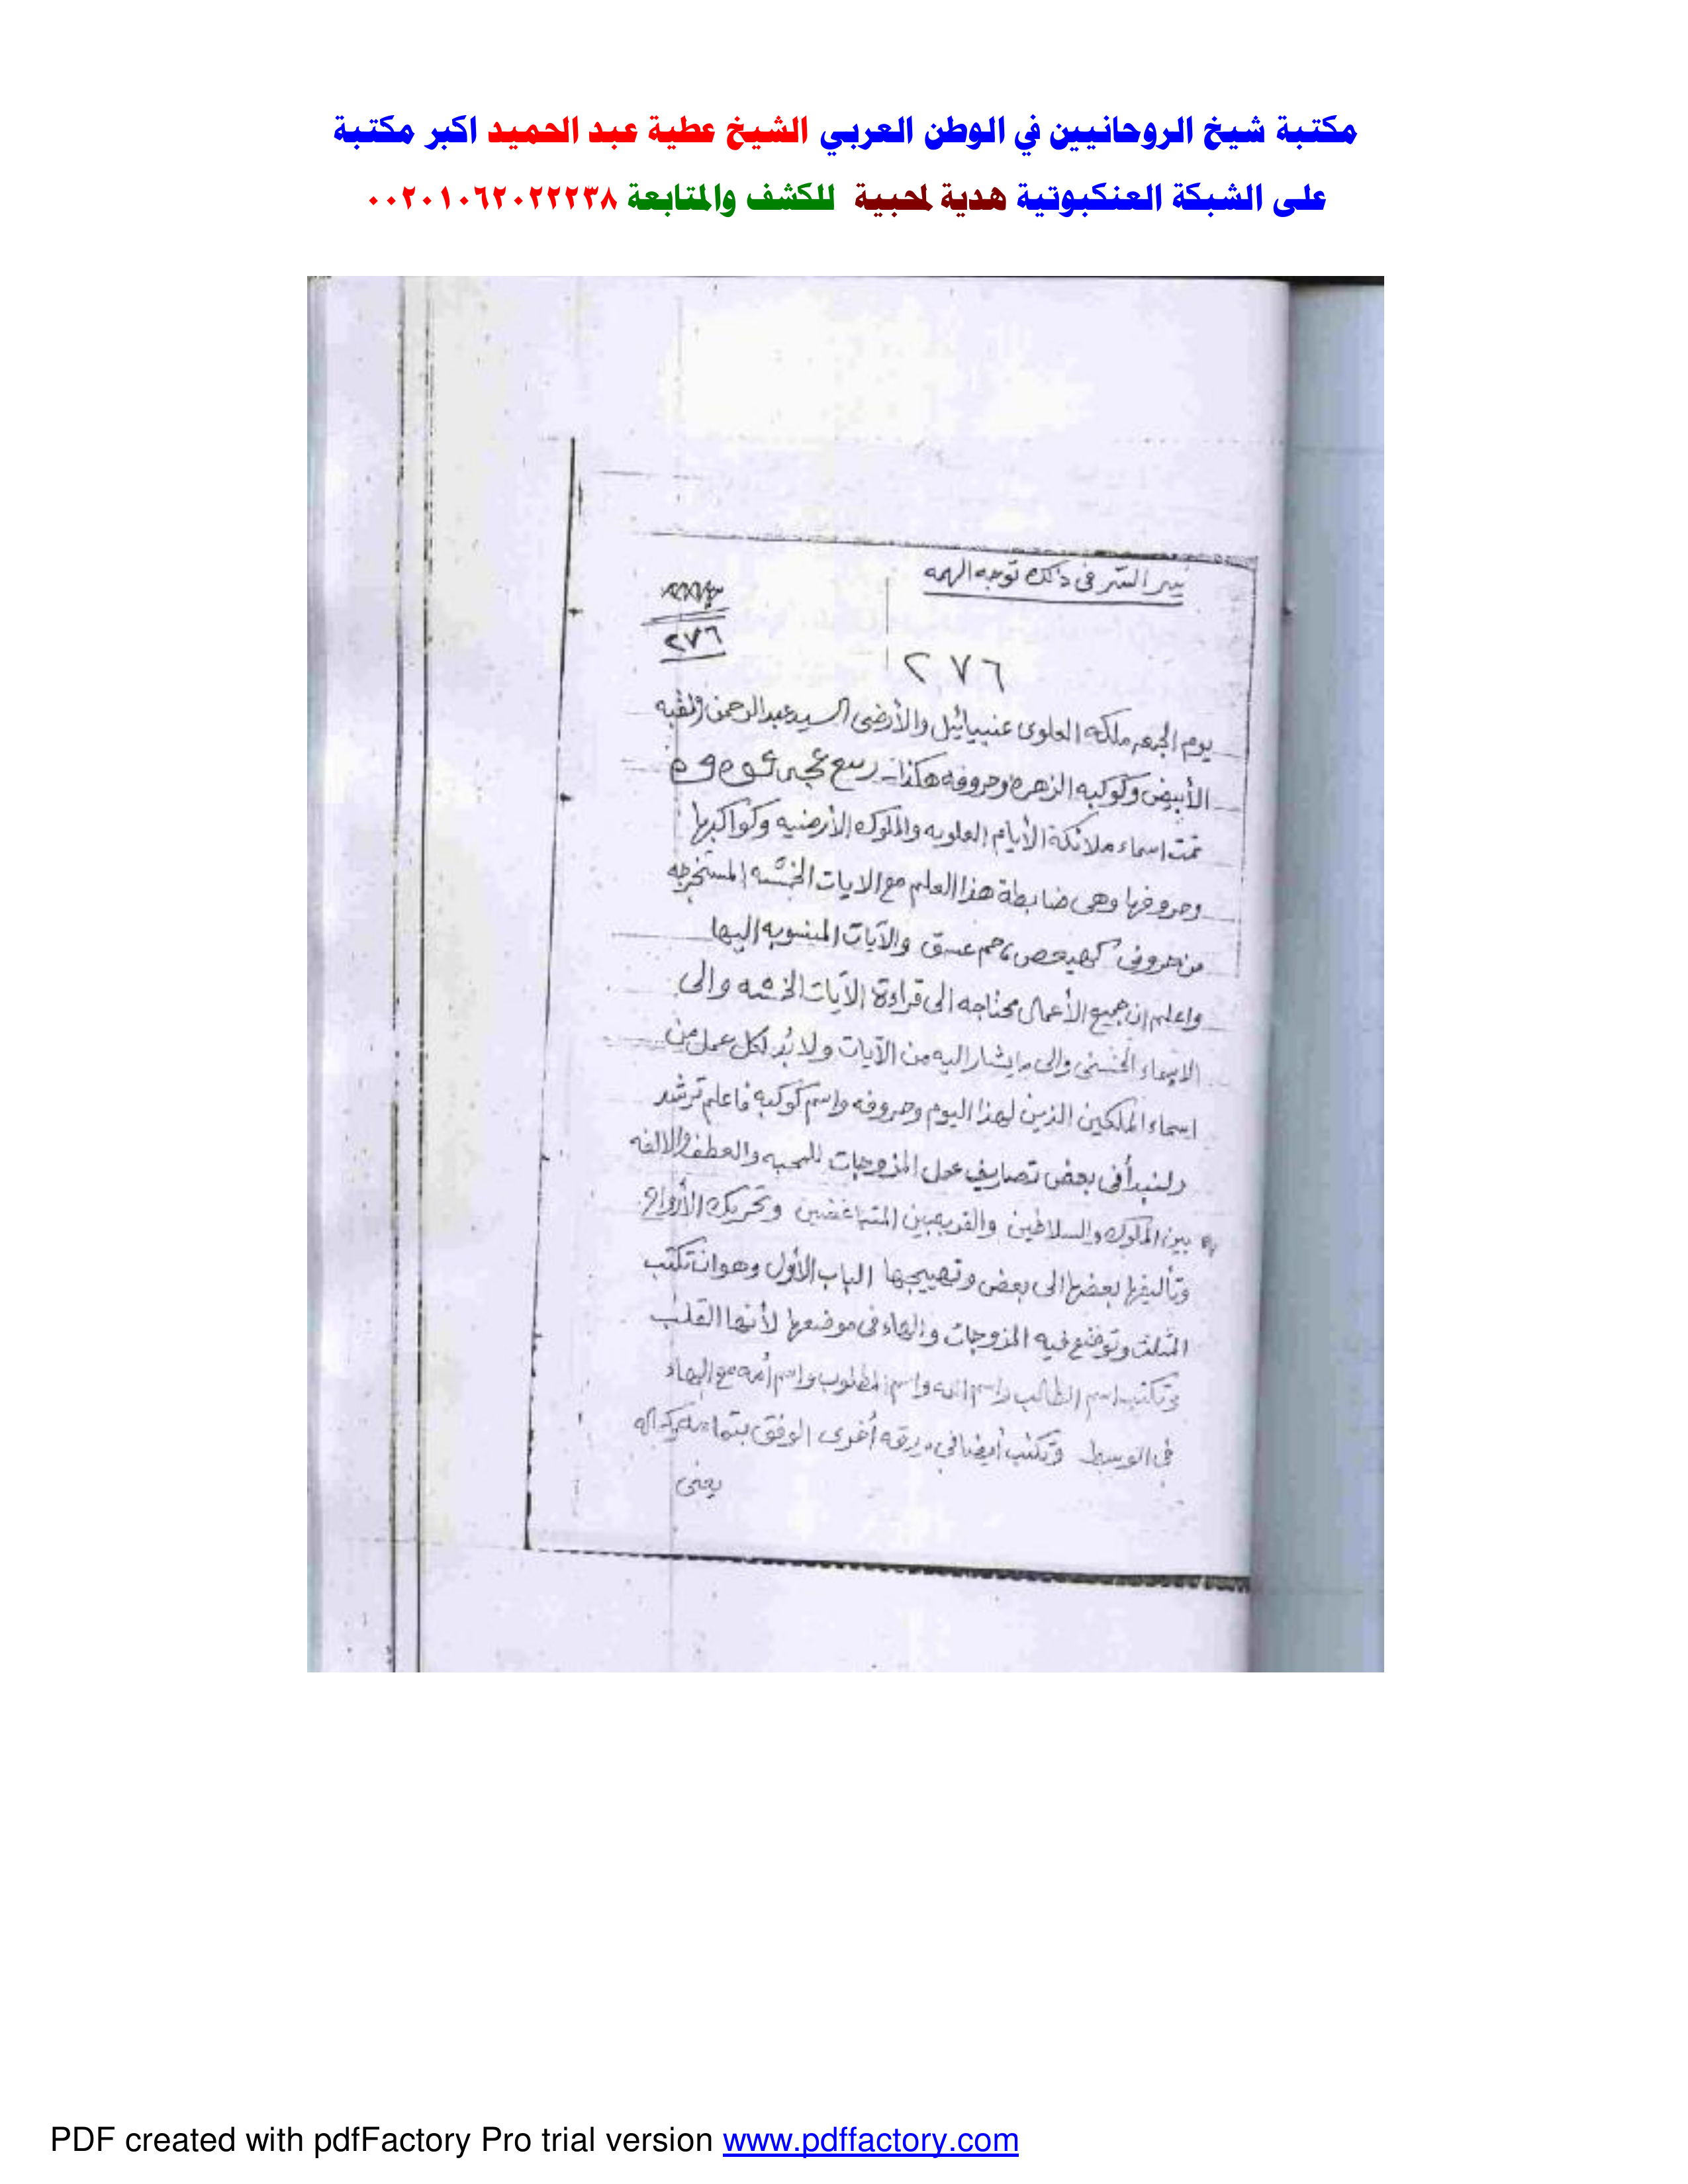 مكتبة شيخ الروحانيين في الوطن العربي الشيخ عطية عبد الحميد اكبر مكتبة
على الشبكة العنكبوتية هدية لمحبية للكشف والمتابعة ٠٠٢٠١٠٦٢٠٢٢٢٣٨
السر فى ذلك توجه الهمه
٢٧٦
٢٧٦
يوم الجمعه ملكه العلوى عنييائيل والأرضى السيد عبد الرحمن ولقبه
الأبيض وكوكبه الزهره وحروفه هكذا
تمت اسماء ملائكة الأيام العلويه والملوك الأرضيه وكواكبها
وحروفها وهى ضابطة هذا العلم مع الايات الخمسه المستخرجه
من حروف كهيعص حم عسق والآيات المنسوبه إليها
واعلم ان جميع الأعمال محتاجه الى قراءة الآيات الخمسه والى
الاسماء الحسنى والى ما يشار اليه من الآيات ولا بُد لكل عمل من
اسماء الملكين الذين لهذا اليوم وحروفه واسم كوكبه فاعلم ترشد
ولنبدأ فى بعض تصاريف عمل المزوجات للمحبه والعطف والالفه
بين الملوك والسلاطين والقريبين المتباغضين وتحريك الأرواح
وتأليفها بعضها الى بعض وتهييجها الباب الأول وهو ان تكتب
المثلث وتوضع فيه المزوجات والهاء فى موضعها لأنها القلب
وتكتب اسم الطالب واسم امه واسم المطلوب واسم أمه مع الهاء
فى الوسط وتكتب أيضا فى ورقه أخرى الوفق بتمامه
يعنى
PDF created with pdfFactory Pro trial version www.pdffactory.com